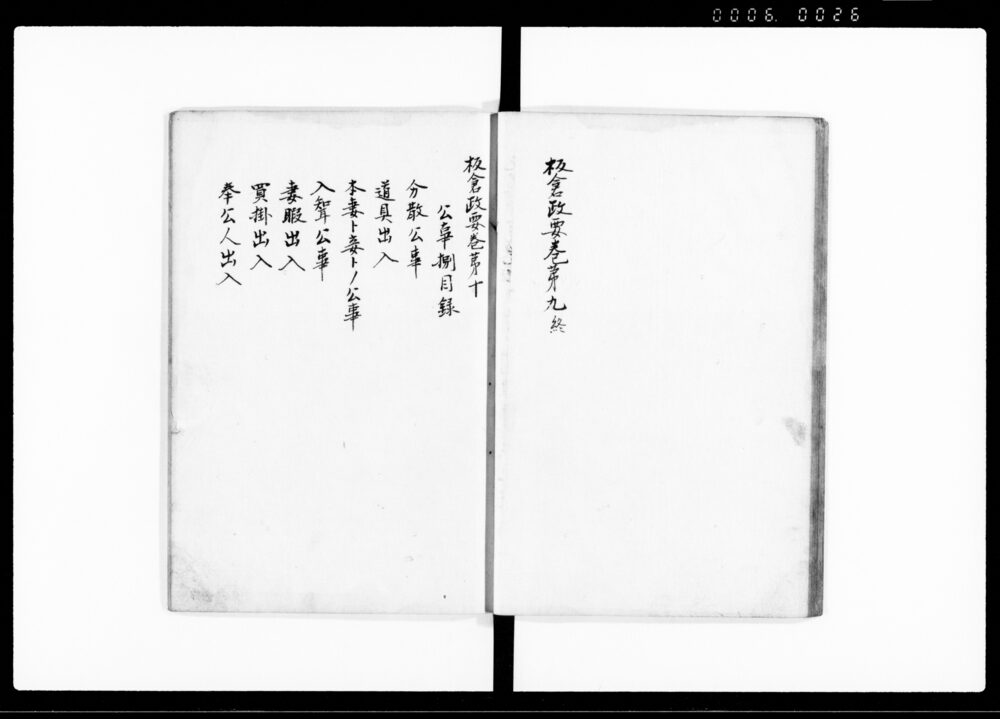 0006. 0026
板倉政要巻第九終
板倉政要巻第十
公事捌目録
分散公事
道具出入
本妻ト妾トノ公事
入聟公事
妻暇出入
買掛出入
奉公人出入